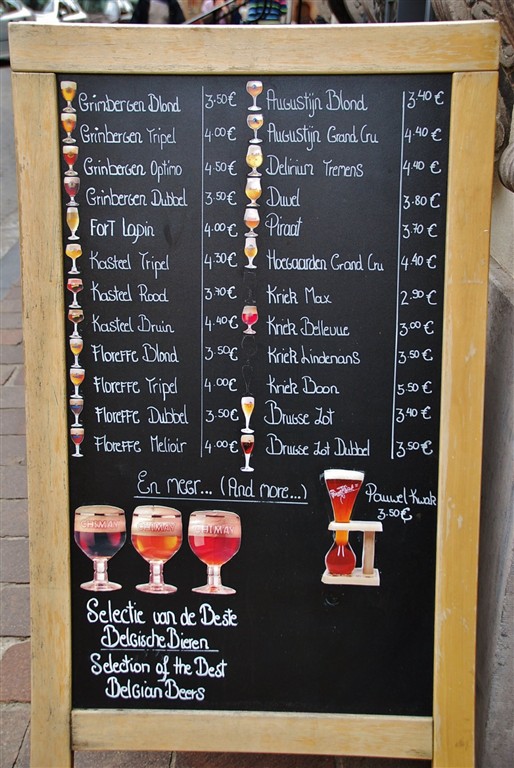 Grimbergen Blond 3.50€
Grimbergen Tripel 4.00€
Grimbergen Optimo 4.50€
Grimbergen Dubbel 3.50€
Fort Lapin 4.00€
Kasteel Tripel 4.30€
Kasteel Rood 3.70€
Kasteel Bruin 4.40€
Floreffe Blond 3.50€
Floreffe Tripel 4.00€
Floreffe Dubbel 3.50€
Floreffe Melioir 4.00€
Augustijn Blond 3.40€
Augustijn Grand Cru 4.40€
Delirium Tremens 4.40€
Duvel 3.80€
Piraat 3.70€
Hoegaarden Grand Cru 4.40€
Kriek Max 2.90€
Kriek Bellevue 3.00€
Kriek Lindemans 3.50€
Kriek Boon 5.50€
Brugse Zot 3.40€
Brugse Zot Dubbel 3.50€
En meer... (And more...)
CHIMAY CHIMAY CHIMAY
Pauwel-Kwak
3.50€
Selectie van de Beste
Belgische Bieren
Selection of the Best
Belgian Beers